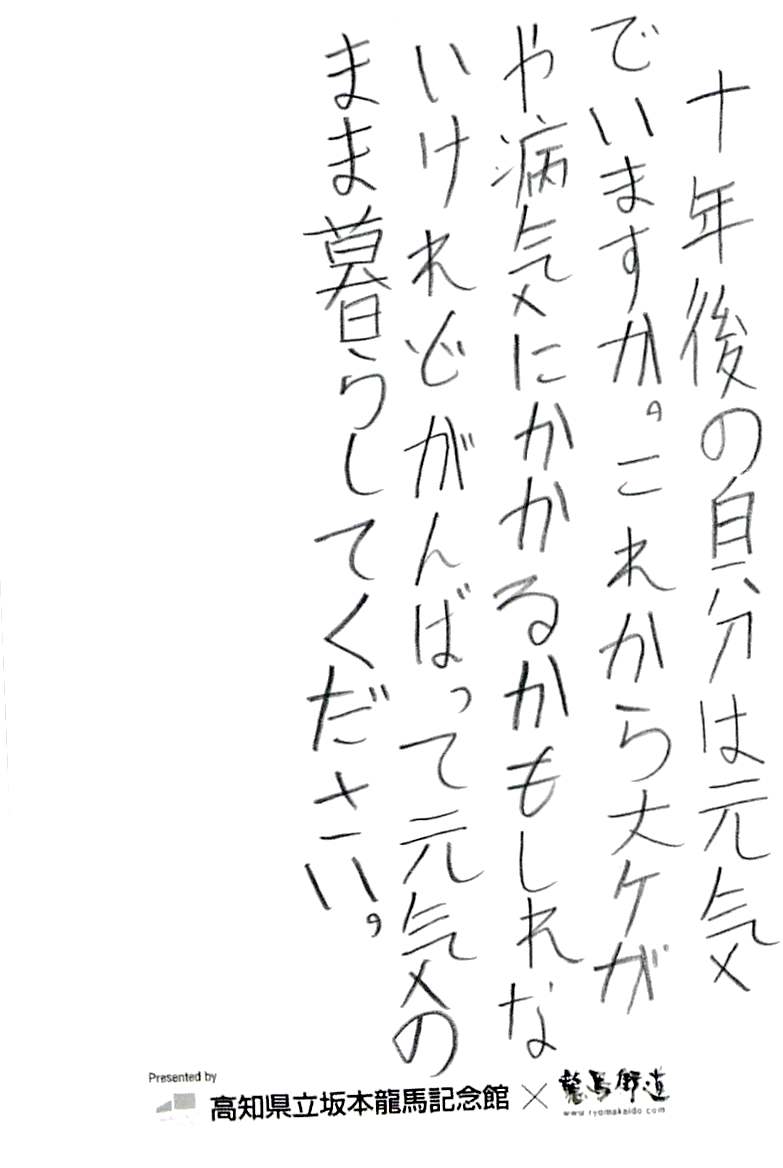 十年後の自分は元気
でいますか。これから大ケガ
や病気にかかるかもしれな
いけれどがんばって元気の
まま暮らしてください。
Presented by
高知県立坂本龍馬記念館×龍馬街道
www.ryomakaido.com